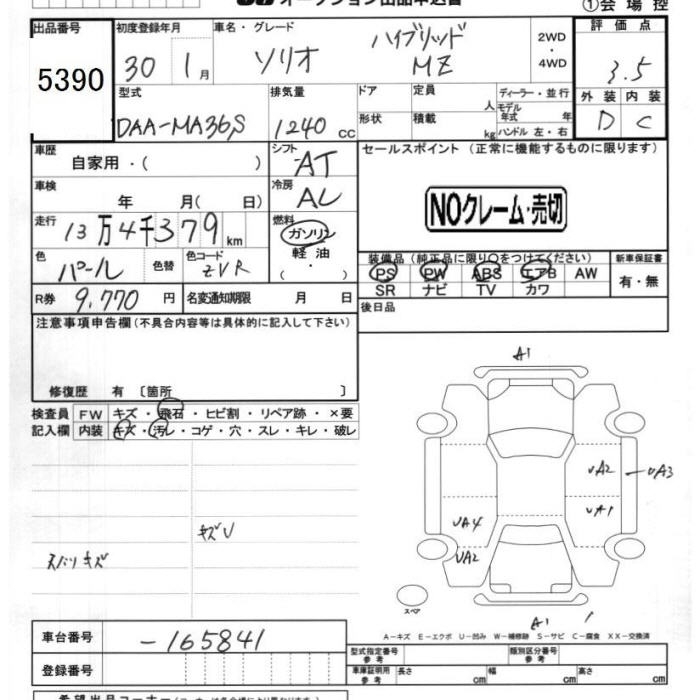 オークション出品申込書
①会場控
出品番号
5390
初度登録年月
30 1月
車名・グレード
ソリオ ハイブリッド MZ
2WD・4WD
評価点
3.5
外装 内装
D C
型式
DAA-MA36S
排気量
1240 cc
ドア
形状
定員 人
積載 kg
ディーラー・並行
モデル年式 年
ハンドル 左・右
車歴
自家用・( )
シフト
AT
セールスポイント（正常に機能するものに限ります）
NOクレーム・売切
車検
年 月( 日)
冷房
AC
走行
13万4千379km
燃料
ガソリン
軽油
・
色
パール
色替
色コード
ZVR
装備品（純正品に限り○をつけてください）
PS PW ABS エアB AW
SR ナビ TV カワ
新車保証書
有・無
R券 9,770円
名変通知期限 月 日
後日品
注意事項申告欄（不具合内容等は具体的に記入して下さい）
修復歴 有〔箇所 〕
検査員記入欄
FW キズ・飛石・ヒビ割・リペア跡・×要
内装 キズ・汚レ・コゲ・穴・スレ・キレ・破レ
キズU
キズ
A1
UA2
UA3
UA1
UA4
UA2
A1
スペア
A－キズ E－エクボ U－凹み W－補修跡 S－サビ C－腐食 XX－交換済
車台番号
-165841
登録番号
型式指定番号 参考
類別区分番号 参考
車庫証明用 参考
長さ cm 幅 cm 高さ cm
希望出品コーナー